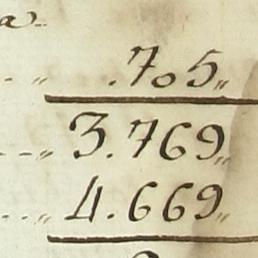 a
.705,,
3.769,,
4.669,,